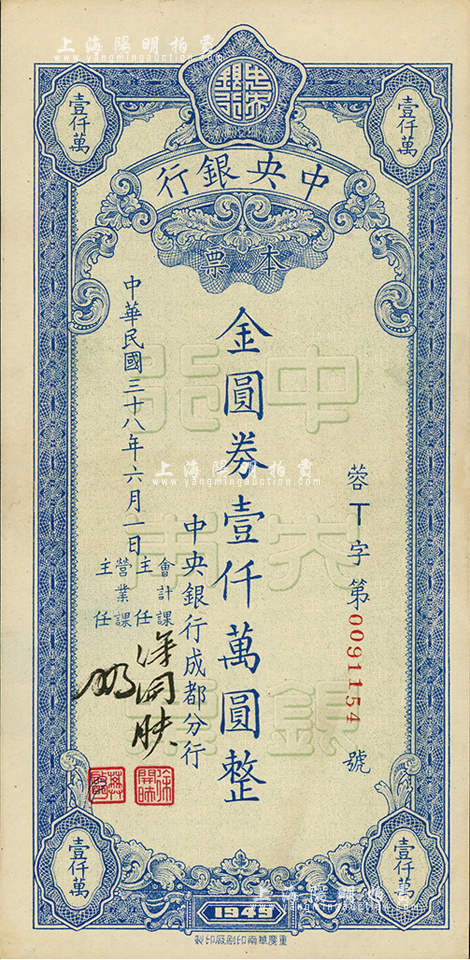 上海陽明拍賣
www.yangmingauction.com
壹仟萬
壹仟萬
中央銀行
本票
蓉丁字第0091154號
金圓券壹仟萬圓整
中央銀行成都分行
會計課主任
營業課主任
中華民國三十八年六月一日
上海陽明拍賣
www.yangmingauction.com
壹仟萬
壹仟萬
1949
重慶華南印刷廠印製
上海陽明拍賣
www.yangmingauction.com